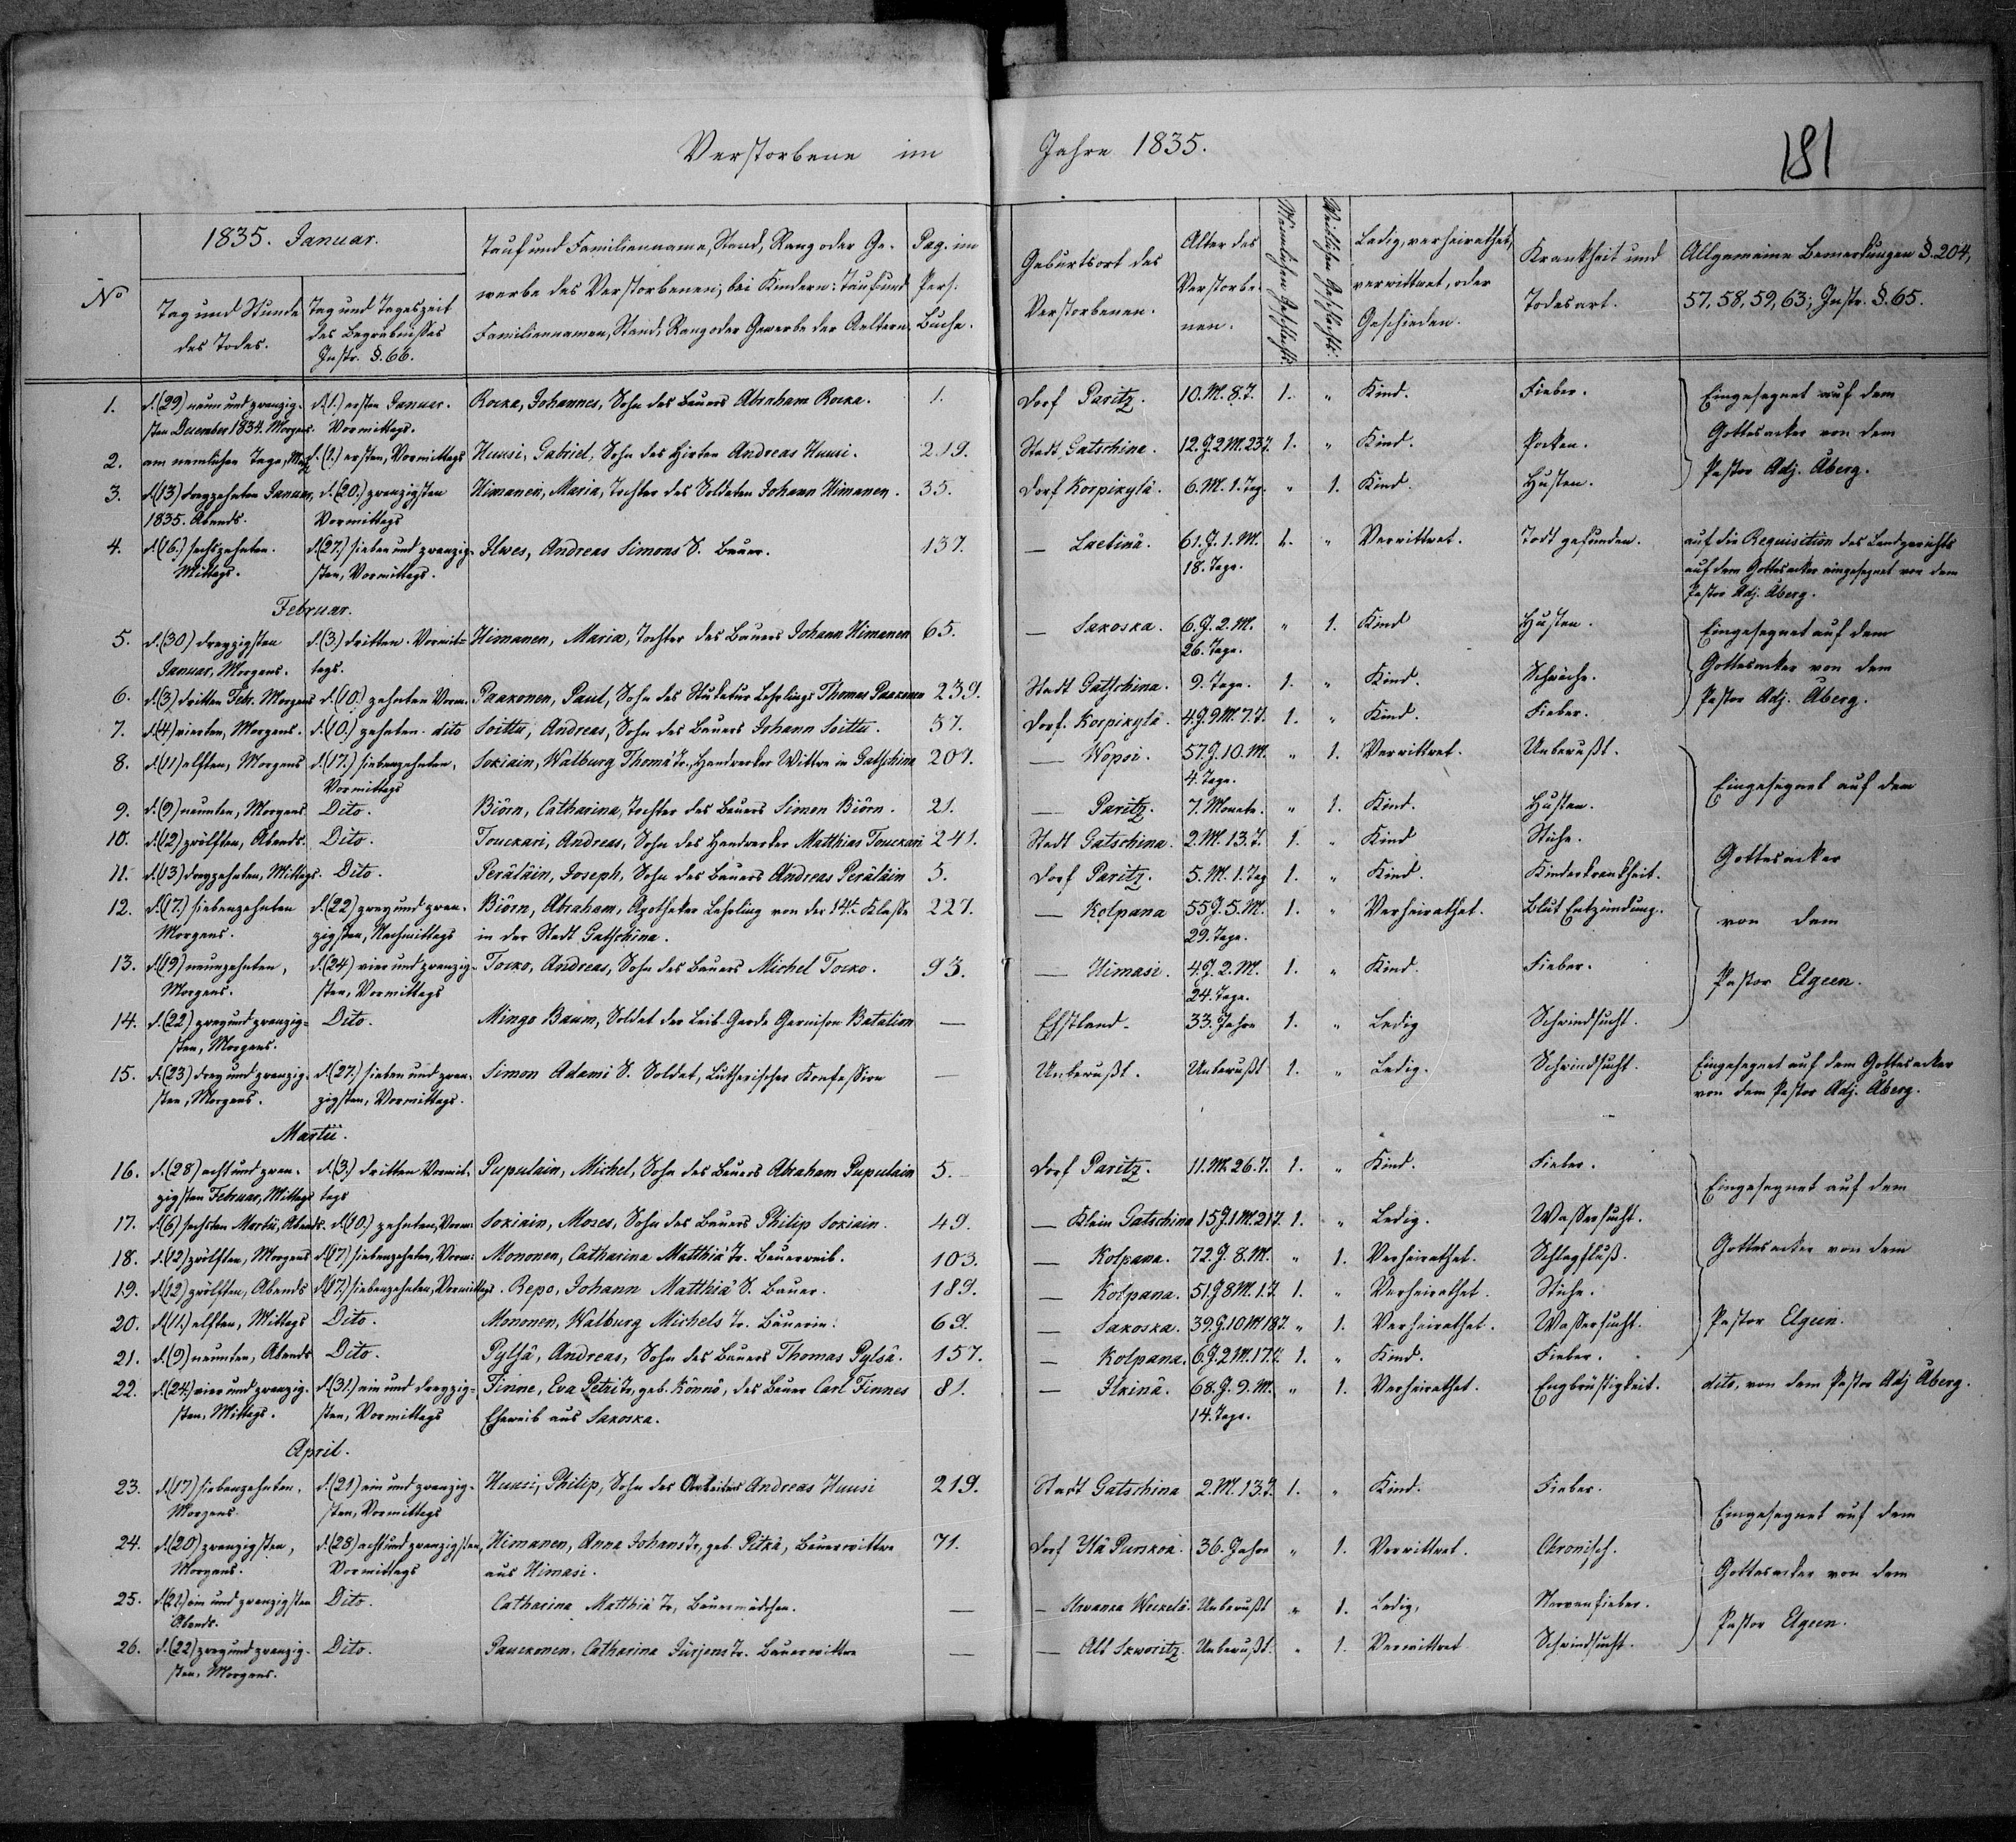 Verstorbene im Jahre 1835.
181
No
1835. Januar.
Tag und Stunde des Todes.
Tag und Tageszeit des Begräbnisses Instr. §. 66.
Tauf und Familienname, Stand, Rang oder Gewerbe des Verstorbenen; bei Kindern: Tauf und Familiennamen, Stand, Rang oder Gewerbe der Aeltern.
Pag. im Pers. Buche.
Geburtsort des Verstorbenen.
Alter des Verstorbenen.
Männlichen Geschlechts.
Weiblichen Geschlechts.
Ledig, verheirathet, verwittwet, oder Geschieden.
Krankheit und Todesart.
Allgemeine Bemerkungen §. 204, 57. 58, 59, 63; Instr. §. 65.
1. d. (29) neun und zwanzigsten December 1834. Morgens. d. (1.) ersten Januar. Vormittags. Rocka, Johannes, Sohn des Bauers Abraham Rocka. 1. Dorf Paritz. 10. M. 8. T. 1. " Kind. Fieber.
2. am nemlichen Tage, d. (1.) ersten, Vormittags Huusi, Gabriel, Sohn des Hirten Andreas Huusi. 219. Stadt Gatschina. 12. J. 2 M. 23 T. 1. " Kind. Pocken.
3. d. (13) dreyzehnten Januar, 1835. Abends. d. (20.) zwanzigsten Vormittags Himanen, Maria, Tochter des Soldaten Johann Himanen. 35. Dorf Korpikylä. 6. M. 1. Tag. " 1. Kind. Husten.
Eingesegnet auf dem Gottesacker von dem Pastor Adj. Åberg.
4. d. (16.) sechszehnten. Mittags. d. (27.) sieben und zwanzigsten, Vormittags. Ilwes, Andreas Simons S. Bauer. 137. — Laelinä. 61. J. 1. M. 18. Tage. 1. " Verwittwet. Todt gefunden. auf die Requisition des Landgerichts auf dem Gottesacker eingesegnet von dem Pastor Adj. Åberg.
Februar.
5. d. (30) dreyzigsten Januar, Morgens. d. (3.) dritten. Vormittags. Himanen, Maria, Tochter des Bauers Johann Himanen 65. — Sakoska. 6. J. 2. M. 26. Tage. " 1. Kind Husten.
6. d. (3) dritten Febr. Morgens d. (10.) zehnten Vorm. Paakonen, Paul, Sohn des Stukatur Lehrlings Thomas Paakonen 239. Stadt Gatschina. 9. Tage. 1. " Kind. Schwäche.
7. d. (4) vierten, Morgens. d. (10.) zehnten. dito Soittu, Andreas, Sohn des Bauers Johann Soittu. 37. Dorf. Korpikylä. 4. J. 9 M. 7. T. 1. " Kind. Fieber.
Eingesegnet auf dem Gottesacker von dem Pastor Adj. Åberg.
8. d. (11) elften, Morgens d. (17.) siebenzehnten, Vormittags Sokiain, Walburg Thomä Tr., Handwerker Wittwe in Gatschina 207. — Wopsi. 57 J. 10. M. 4. Tage. " 1. Verwittwet. Unbewußt.
9. d. (9) neunten, Morgens Dito. Biörn, Catharina, Tochter des Bauers Simon Biörn. 21. — Paritz. 7. Monate. " 1. Kind. Husten.
10. d. (12) zwölften, Abends. Dito. Touckari, Andreas, Sohn des Handwerker Matthias Touckari 241. Stadt Gatschina. 2. M. 13. T. 1. " Kind Stiche.
11. d. (13) dreyzehnten, Mittags. Dito. Peräläin, Joseph, Sohn des Bauers Andreas Peräläin 3. Dorf Paritz. 5. M. 1. Tag 1. " Kind. Kinderkrankheit.
12. d. (17.) siebenzehnten Morgens. d. (22) zwey und zwanzigsten, Nachmittags Biörn, Abraham, Apotheker Lehrling von der 14t. Klasse in der Stadt Gatschina. 227. — Kolpana 55 J. 5. M. 29. Tage. 1. " Verheirathet. Blut Entzündung.
13. d. (19) neunzehnten, Morgens. d. (24) vier und zwanzigsten, Vormittags Tocko, Andreas, Sohn des Bauers Michel Tocko. 93. — Himasi. 4. J. 2. M. 24. Tage. 1. " Kind. Fieber.
14. d. (22) zwey und zwanzigsten, Morgens. Dito. Mingo Baum, Soldat der Leib-Garde Garnison Batalion — Ehstland. 33. Jahre 1. " Ledig Schwindsucht.
Eingesegnet auf dem Gottesacker von dem Pastor Elgeen.
15. d. (23) drey und zwanzigsten, Morgens. d. (27.) sieben und zwanzigsten, Vormittags. Simon Adami S. Soldat, Lutherischer Konfession — Unbewußt. Unbewußt 1. " Ledig. Schwindsucht. Eingesegnet auf dem Gottesacker von dem Pastor Adj. Åberg.
Martii.
16. d. (28) acht und zwanzigsten Februar, Mittags d. (3.) dritten Vormittags Pupulain, Michel, Sohn des Bauers Abraham Pupulain 5. Dorf Paritz. 11. M. 26. T. 1. " Kind. Fieber.
17. d. (6) sechsten Martii, Abends. d. (10.) zehnten, Vorm. Sokiain, Moses, Sohn des Bauers Philip Sokiain. 49. — Klein Gatschina 15 J. 1 M. 21 T. 1. " Ledig. Wassersucht.
18. d. (12) zwölften, Morgens d. (17) siebenzehnten, Vorm: Mononen, Catharina Matthiä Tr. Bauerweib. 103. — Kolpana. 72. J. 8. M. " 1. Verheirathet. Schlagfluß.
19. d. (12) zwölften, Abends d. (17.) siebenzehnten, Vormittags. Repo, Johann Matthiä S. Bauer. 189. — Kolpana. 51. J 8 M. 1. T. 1. " Verheirathet. Stiche.
20. d. (11.) elften, Mittags Dito. Mononen, Walburg Michels Tr. Bäuerin. 69. — Sakoska. 39. J. 10 M 18 T. " 1. Verheirathet. Wassersucht.
21. d. (9) neunten, Abends Dito. Pylsä, Andreas, Sohn des Bauers Thomas Pylsä. 157. — Kolpana. 6. J. 2 M. 17. T. 1. " Kind. Fieber.
Eingesegnet auf dem Gottesacker von dem Pastor Elgeen.
22. d. (24) vier und zwanzigsten, Mittags. d. (31.) ein und dreyzigsten, Vormittags Finne, Eva Petri Tr., geb. Könnö, des Bauer Carl Finnes Eheweib aus Sakoska. 81. — Ilkinä. 68. J. 9. M. 14. Tage. " 1. Verheirathet. Engbrüstigkeit. dito, von dem Pastor Adj Åberg.
April.
23. d. (17) siebenzehnten, Morgens. d. (21) ein und zwanzigsten, Vormittags Huusi, Philip, Sohn des Arbeiters Andreas Huusi 219. Stadt Gatschina 2. M. 13. T. 1. " Kind. Fieber.
24. d. (20) zwanzigsten, Morgens. d. (28) acht und zwanzigsten, Vormittags Himanen, Anna Johans Tr., geb. Pitkä, Bauerwittwe aus Himasi. 71. Dorf Ylä Purskoi. 36. Jahre " 1. Verwittwet. Chronisch.
25. d. (21) ein und zwanzigsten Abends. Dito. Catharina Matthiä Tr., Bauermädchen. — Unbewußt " 1. Ledig. Nervenfieber.
26. d. (22) zwey und zwanzigsten, Morgens. Dito. Pauckonen, Catharina Jürjens Tr. Bauerwittwe — — Alt Skworitz. Unbewußt. " 1. Verwittwet Schwindsucht.
Eingesegnet auf dem Gottesacker von dem Pastor Elgeen.